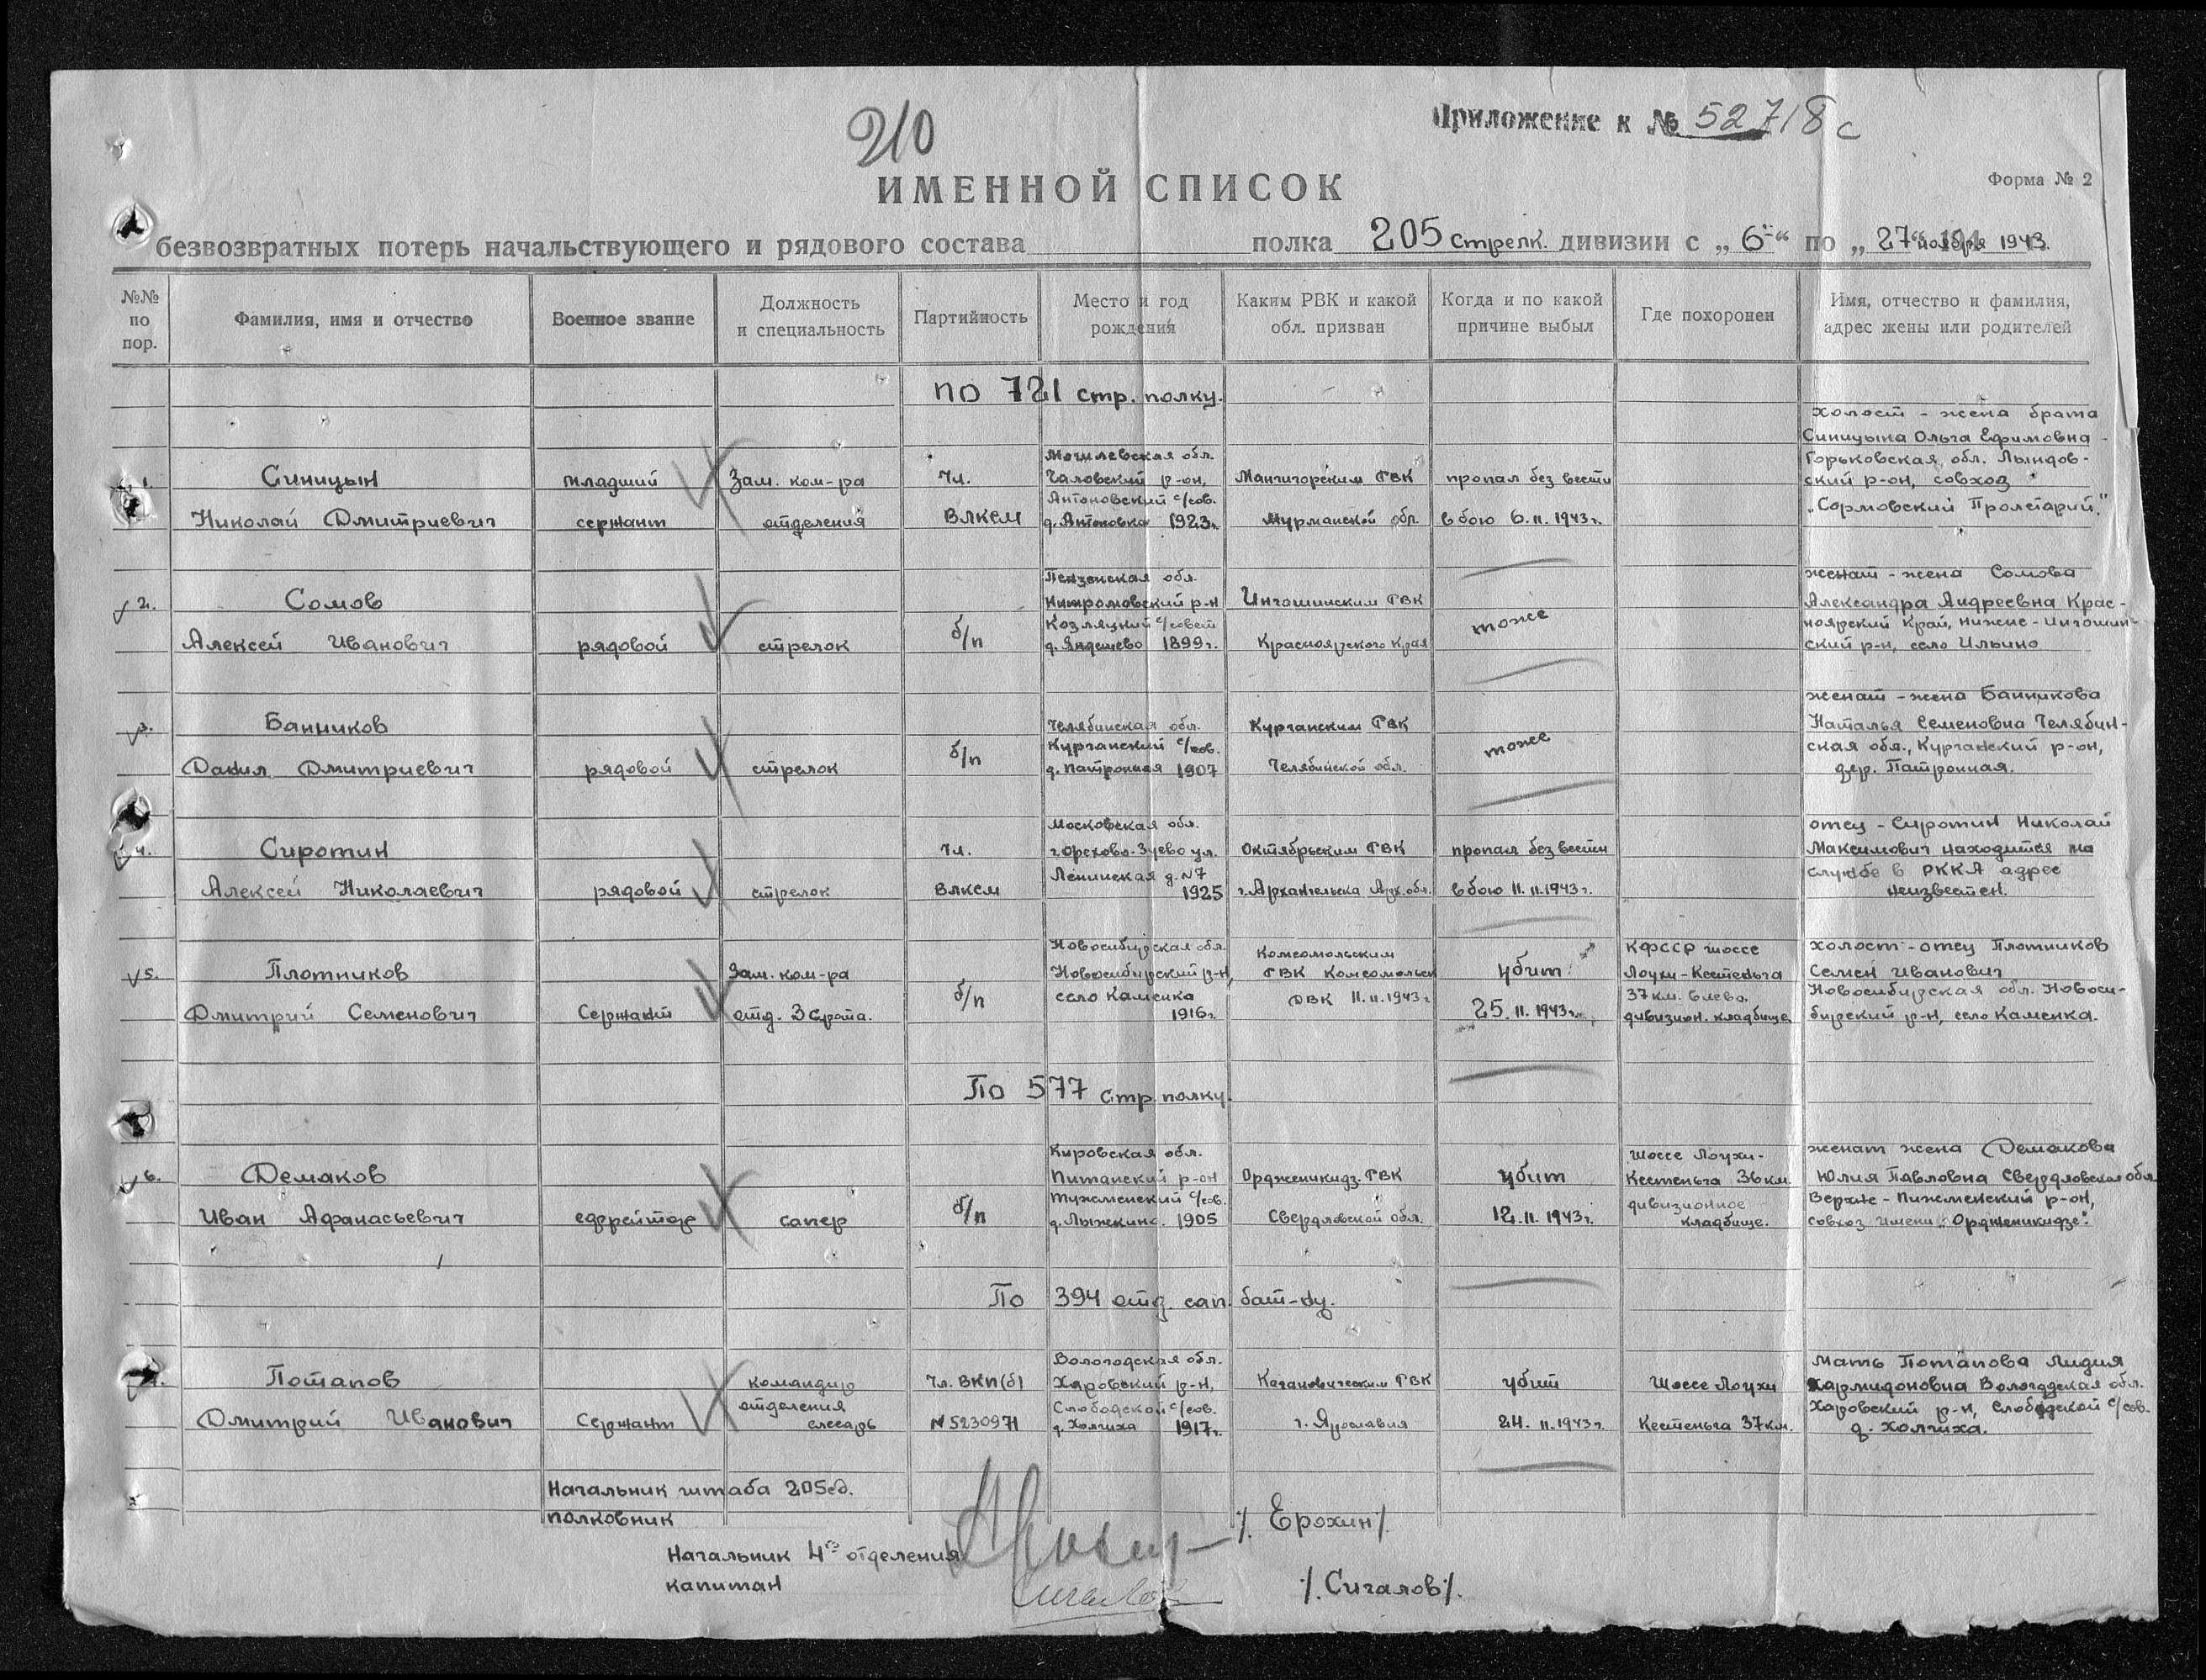 210
Приложение к № 52718с
ИМЕННОЙ СПИСОК
Форма № 2
безвозвратных потерь начальствующего и рядового состава полка 205 стрелк. дивизии с „6" по „27" ноября 1943.
№№ по пор.
Фамилия, имя и отчество
Военное звание
Должность и специальность
Партийность
Место и год рождения
Каким РВК и какой обл. призван
Когда и по какой причине выбыл
Где похоронен
Имя, отчество и фамилия, адрес жены или родителей
по 721 стр. полку.
1.
Синицын
Николай Дмитриевич
младший
сержант
Зам. ком-ра
отделения
Чл.
ВЛКСМ
Могилевская обл.
Чаловский р-он,
Антоновский с/сов.
д. Антоновка 1923г.
Манчигорским РВК
Мурманской обл.
пропал без вести
в бою 6.11.1943г.
холост - жена брата
Синицына Ольга Ефимовна -
Горьковская обл. Лындов-
ский р-он, совхоз
„Сормовский Пролетарий."
2.
Сомов
Алексей Иванович
рядовой
стрелок
б/п
Пензенская обл.
Козляцкий с/совет
д. Яндешево 1899г.
Ингошинским РВК
Красноярского Края
тоже
женат - жена Сомова
Александра Андреевна Крас-
ноярский Край, Нижне-Ингошин-
ский р-н, село Ильино
3.
Банников
Данил Дмитриевич
рядовой
стрелок
б/п
Челябинская обл.
Курганский с/сов.
д. Патронная 1907
Курганским РВК
Челябинской обл.
тоже
женат - жена Банникова
Наталья Семеновна Челябин-
ская обл., Курганский р-он,
дер. Патронная.
4.
Сиротин
Алексей Николаевич
рядовой
стрелок
Чл.
ВЛКСМ
Московская обл.
г. Орехово-Зуево ул.
Ленинская д. №7
1925
Октябрьским РВК
г. Архангельска Арх. обл.
пропал без вести
в бою 11.11.1943г.
отец - Сиротин Николай
Максимович находится на
службе в РККА адрес
неизвестен.
5.
Плотников
Дмитрий Семенович
Сержант
Зам. ком-ра
отд. 3 срота.
б/п
Новосибирская обл.
Новосибирский р-н,
село Каменка
1916г.
Комсомольским
РВК Комсомольск
ДВК 11.11.1943г
убит
25.11.1943г.
КФССР шоссе
Лоухи-Кестеньга
37 км. влево.
дивизион. кладбище
холост - отец Плотников
Семен Иванович
Новосибирская обл. Новоси-
бирский р-н, село Каменка.
По 577 стр. полку.
6.
Демаков
Иван Афанасьевич
ефрейтор
сапер
б/п
Кировская обл.
Питанский р-он
Тужменский с/сов.
д. Лыжкино. 1905
Орджоникидз. РВК
Свердловской обл.
убит
12.11.1943г.
шоссе Лоухи-
Кестеньга 36 км.
дивизионное
кладбище.
женат жена Демакова
Юлия Павловна Свердловская обл
Верхне-Пижменский р-он,
совхоз имени „Орджоникидзе".
По 394 отд. сап. бат-ну.
7.
Потапов
Дмитрий Иванович
Сержант
командир
отделения
слесарь
Чл. ВКП(б)
№5230971
Вологодская обл.
Харовский р-н,
Слободской с/сов.
д. Холчиха 1917г.
Кагановическим РВК
г. Ярославля
убит
24.11.1943г.
Шоссе Лоухи
Кестеньга 37 км.
мать Потапова Лидия
Хармидоновна Вологодская обл.
Харовский р-н, Слободской с/сов.
д. Холчиха.
Начальник штаба 205сд.
полковник
/. Ерохин/.
Начальник 4го отделения
капитан
/. Сигалов/.